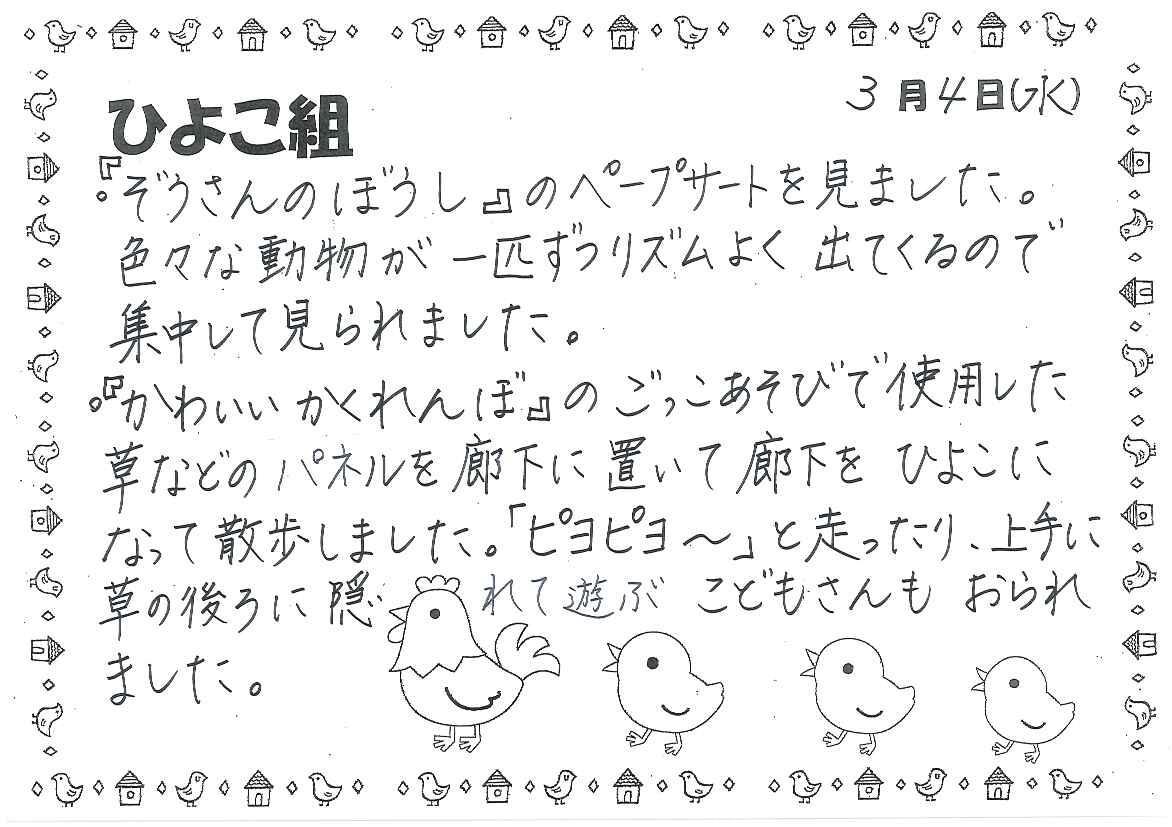 3月4日(水)
ひよこ組
『ぞうさんのぼうし』のペープサートを見ました。
色々な動物が一匹ずつリズムよく出てくるので
集中して見られました。
『かわいいかくれんぼ』のごっこあそびで使用した
草などのパネルを廊下に置いて廊下をひよこに
なって散歩しました。「ピヨピヨ～」と走ったり、上手に
草の後ろに隠れて遊ぶこどもさんもおられ
ました。